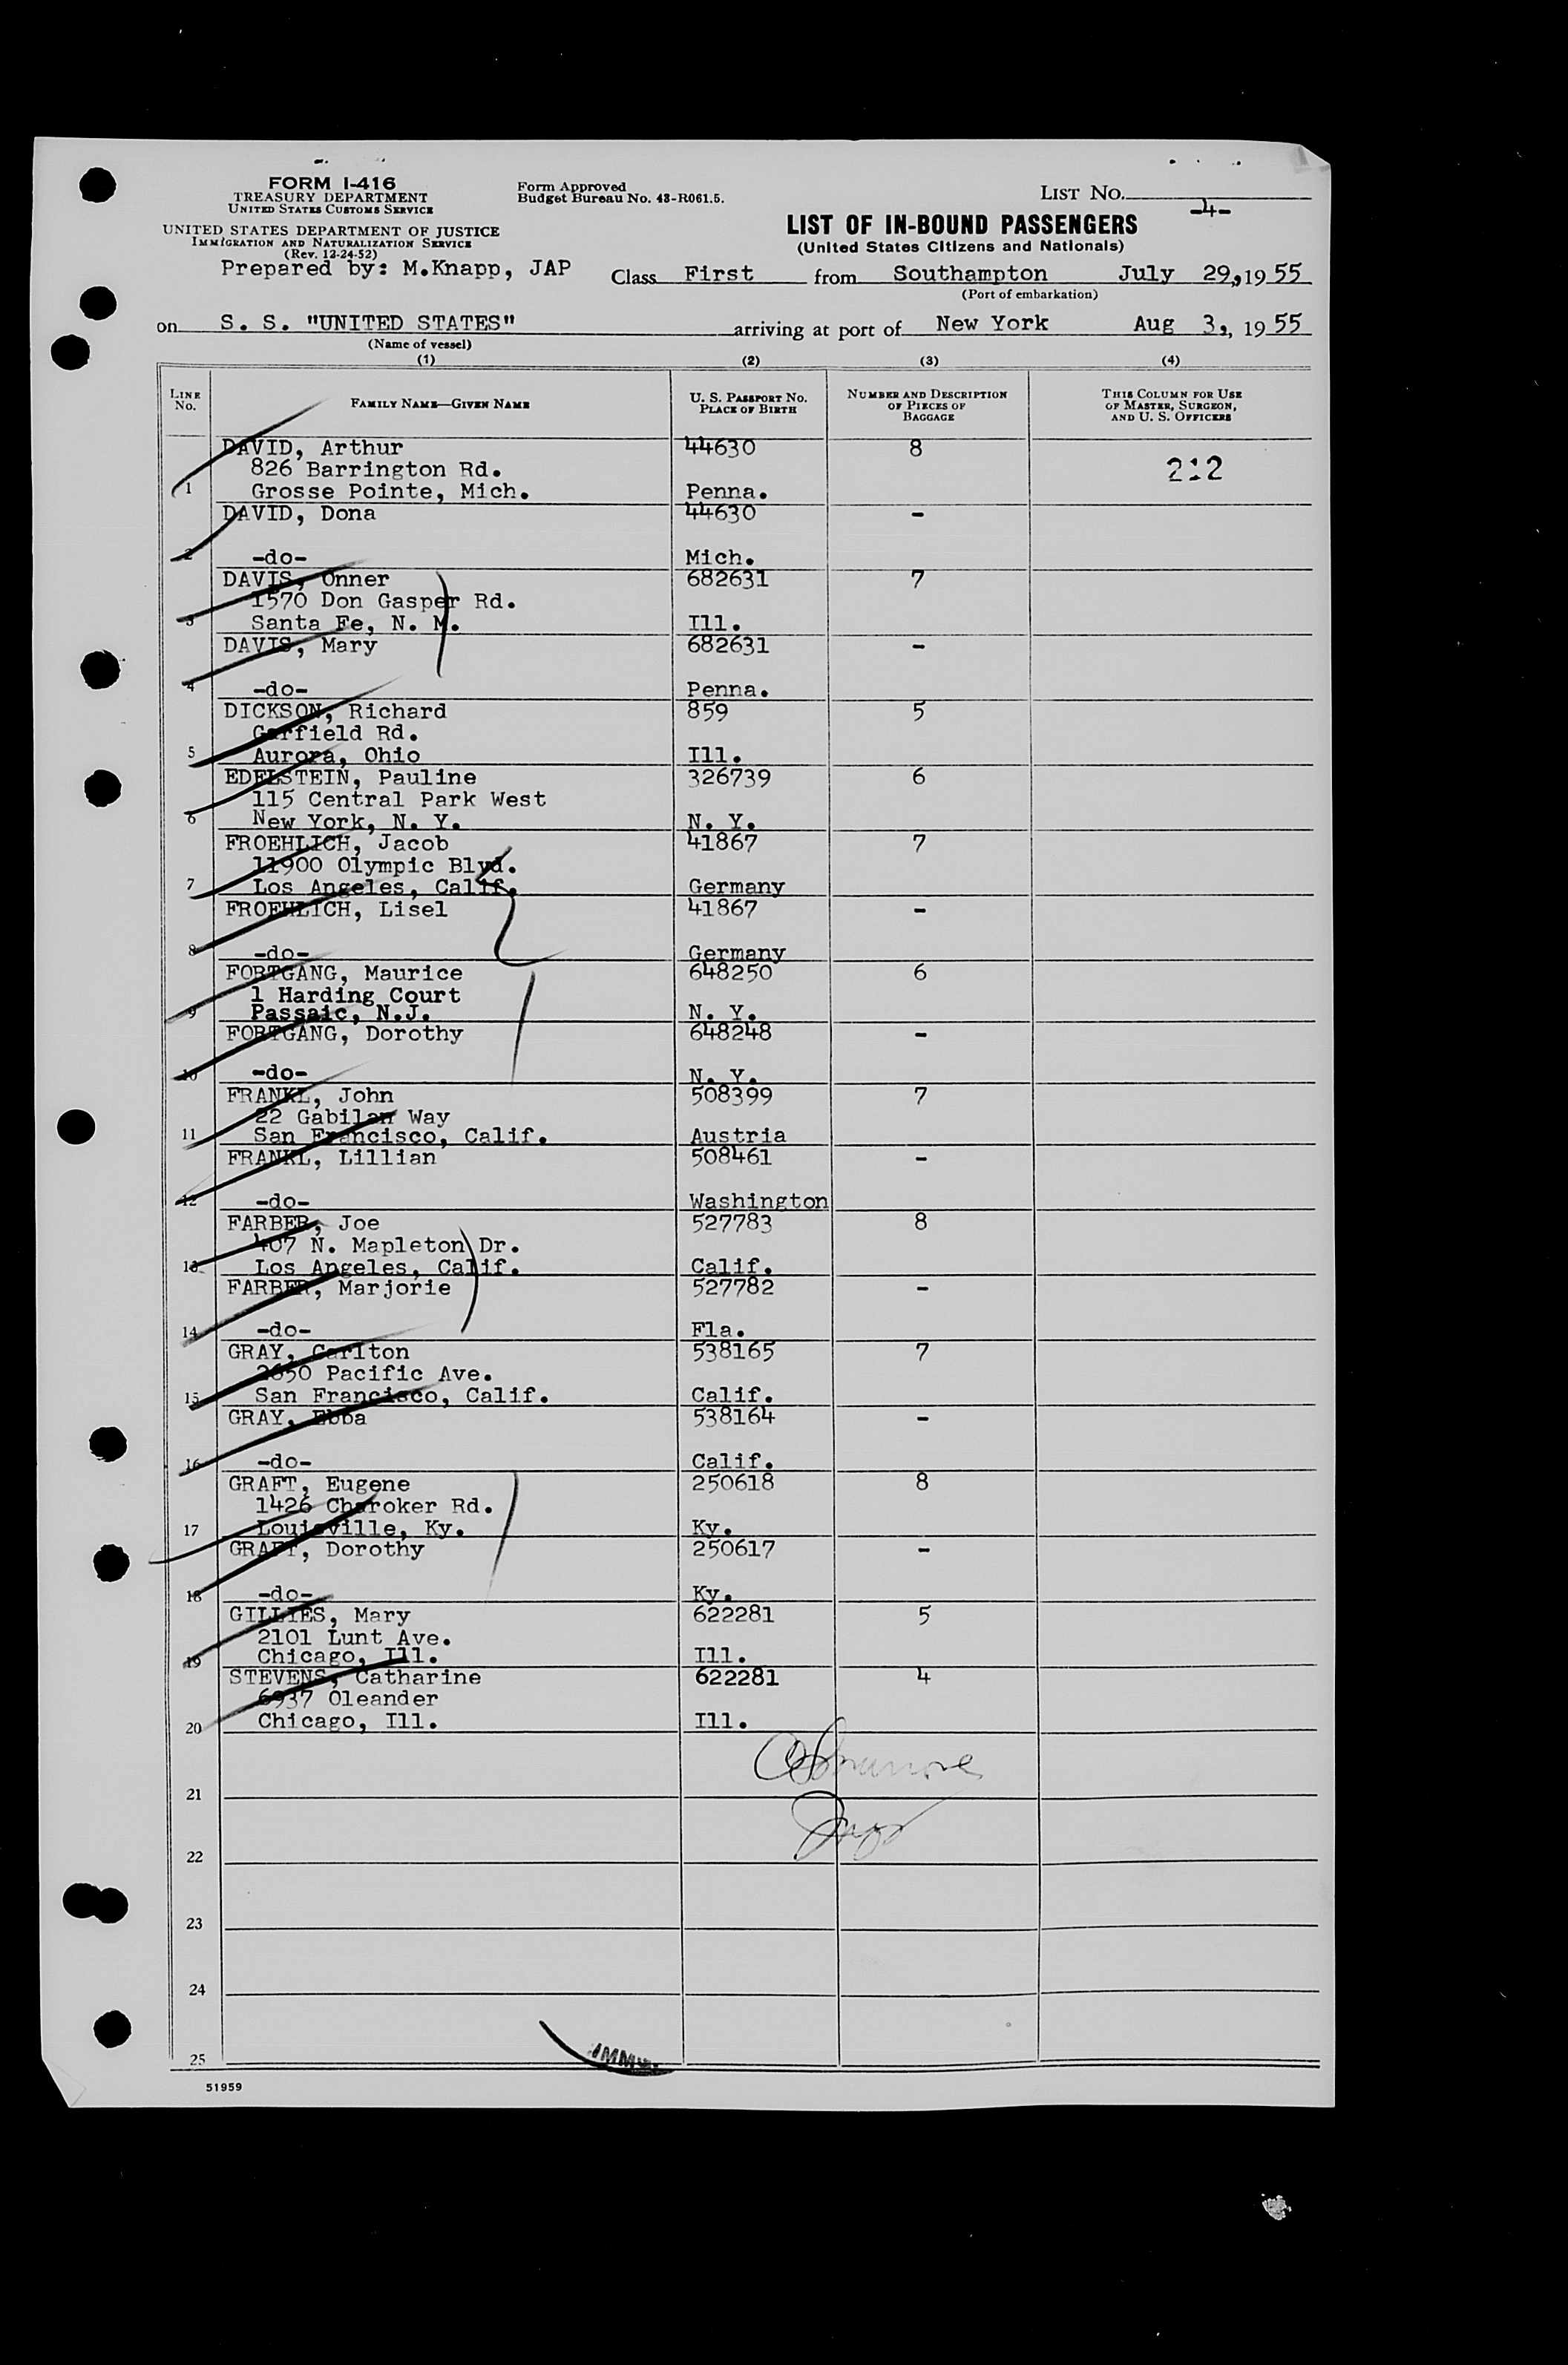 FORM I-416
TREASURY DEPARTMENT
UNITED STATES CUSTOMS SERVICE
UNITED STATES DEPARTMENT OF JUSTICE
IMMIGRATION AND NATURALIZATION SERVICE
(Rev. 12-24-52)
Prepared by: M.Knapp, JAP
Form Approved
Budget Bureau No. 43-R061.5.
LIST NO. -4-
LIST OF IN-BOUND PASSENGERS
(United States Citizens and Nationals)
Class First from Southampton July 29, 19 55
(Port of embarkation)
on S. S. "UNITED STATES" arriving at port of New York Aug 3, 19 55
(Name of vessel)
(1) (2) (3) (4)
LINE NO. FAMILY NAME—GIVEN NAME U. S. PASSPORT NO. PLACE OF BIRTH NUMBER AND DESCRIPTION OF PIECES OF BAGGAGE THIS COLUMN FOR USE OF MASTER, SURGEON, AND U. S. OFFICERS
DAVID, Arthur 44630 8
826 Barrington Rd. 212
1 Grosse Pointe, Mich. Penna.
DAVID, Dona 44630 -
2 -do- Mich.
DAVIS, Onner 682631 7
1570 Don Gasper Rd.
3 Santa Fe, N. M. Ill.
DAVIS, Mary 682631 -
4 -do- Penna.
DICKSON, Richard 859 5
Garfield Rd.
5 Aurora, Ohio Ill.
EDELSTEIN, Pauline 326739 6
115 Central Park West
6 New York, N. Y. N. Y.
FROEHLICH, Jacob 41867 7
11900 Olympic Blvd.
7 Los Angeles, Calif. Germany
FROEHLICH, Lisel 41867 -
8 -do- Germany
FORTGANG, Maurice 648250 6
1 Harding Court
9 Passaic, N.J. N. Y.
FORTGANG, Dorothy 648248 -
10 -do- N. Y.
FRANKL, John 508399 7
22 Gabilan Way
11 San Francisco, Calif. Austria
FRANKL, Lillian 508461 -
12 -do- Washington
FARBER, Joe 527783 8
407 N. Mapleton Dr.
13 Los Angeles, Calif. Calif.
FARBER, Marjorie 527782 -
14 -do- Fla.
GRAY, Carlton 538165 7
2650 Pacific Ave.
15 San Francisco, Calif. Calif.
GRAY, Ebba 538164 -
16 -do- Calif.
GRAFT, Eugene 250618 8
1426 Charoker Rd.
17 Louisville, Ky. Ky.
GRAFT, Dorothy 250617 -
18 -do- Ky.
GILLIES, Mary 622281 5
2101 Lunt Ave.
19 Chicago, Ill. Ill.
STEVENS, Catharine 622281 4
6937 Oleander
20 Chicago, Ill. Ill.
21
22
23
24
25
51959